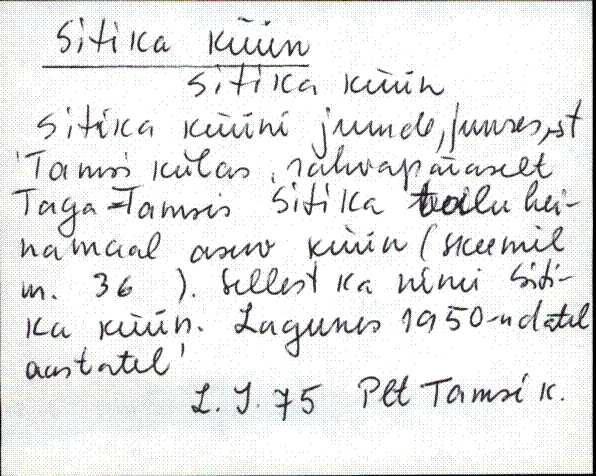 Sitika küün
Sitika küün
Sitika küüni juurde, juures, st
'Tamsi külas, rahvapäraselt
Taga-Tamsis Sitika talu hei-
namaal asuv küün (skeemil
m. 36 ). Sellest ka nimi Siti-
ka küün. Lagunes 1950-ndatel
aastatel'
L. J. 75 Plt Tamsi k.